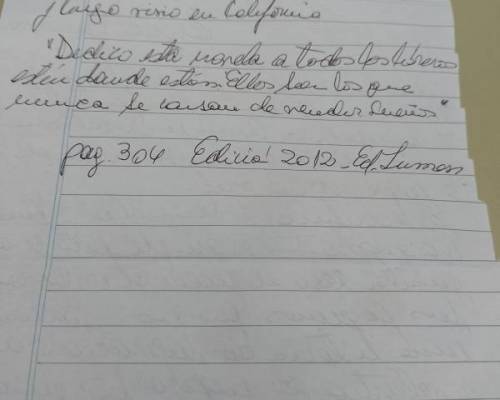 y luego vivió en California
"Dedico esta novela a todos los libreros
estén donde estén. Ellos son los que
nunca se cansan de vender sueños"
pag. 304 Edició 2012 - Ed. Lumen